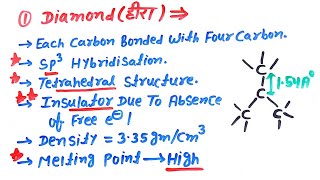 ① Diamond (हीरा) ⇒
→ Each Carbon Bonded With Four Carbon.
→ SP³ Hybridisation.
→ Tetrahedral Structure.
→ Insulator Due To Absence
of Free e⊖!
→ Density = 3.35gm/cm³
→ Melting Point → High
C
C
C C
1.54A°